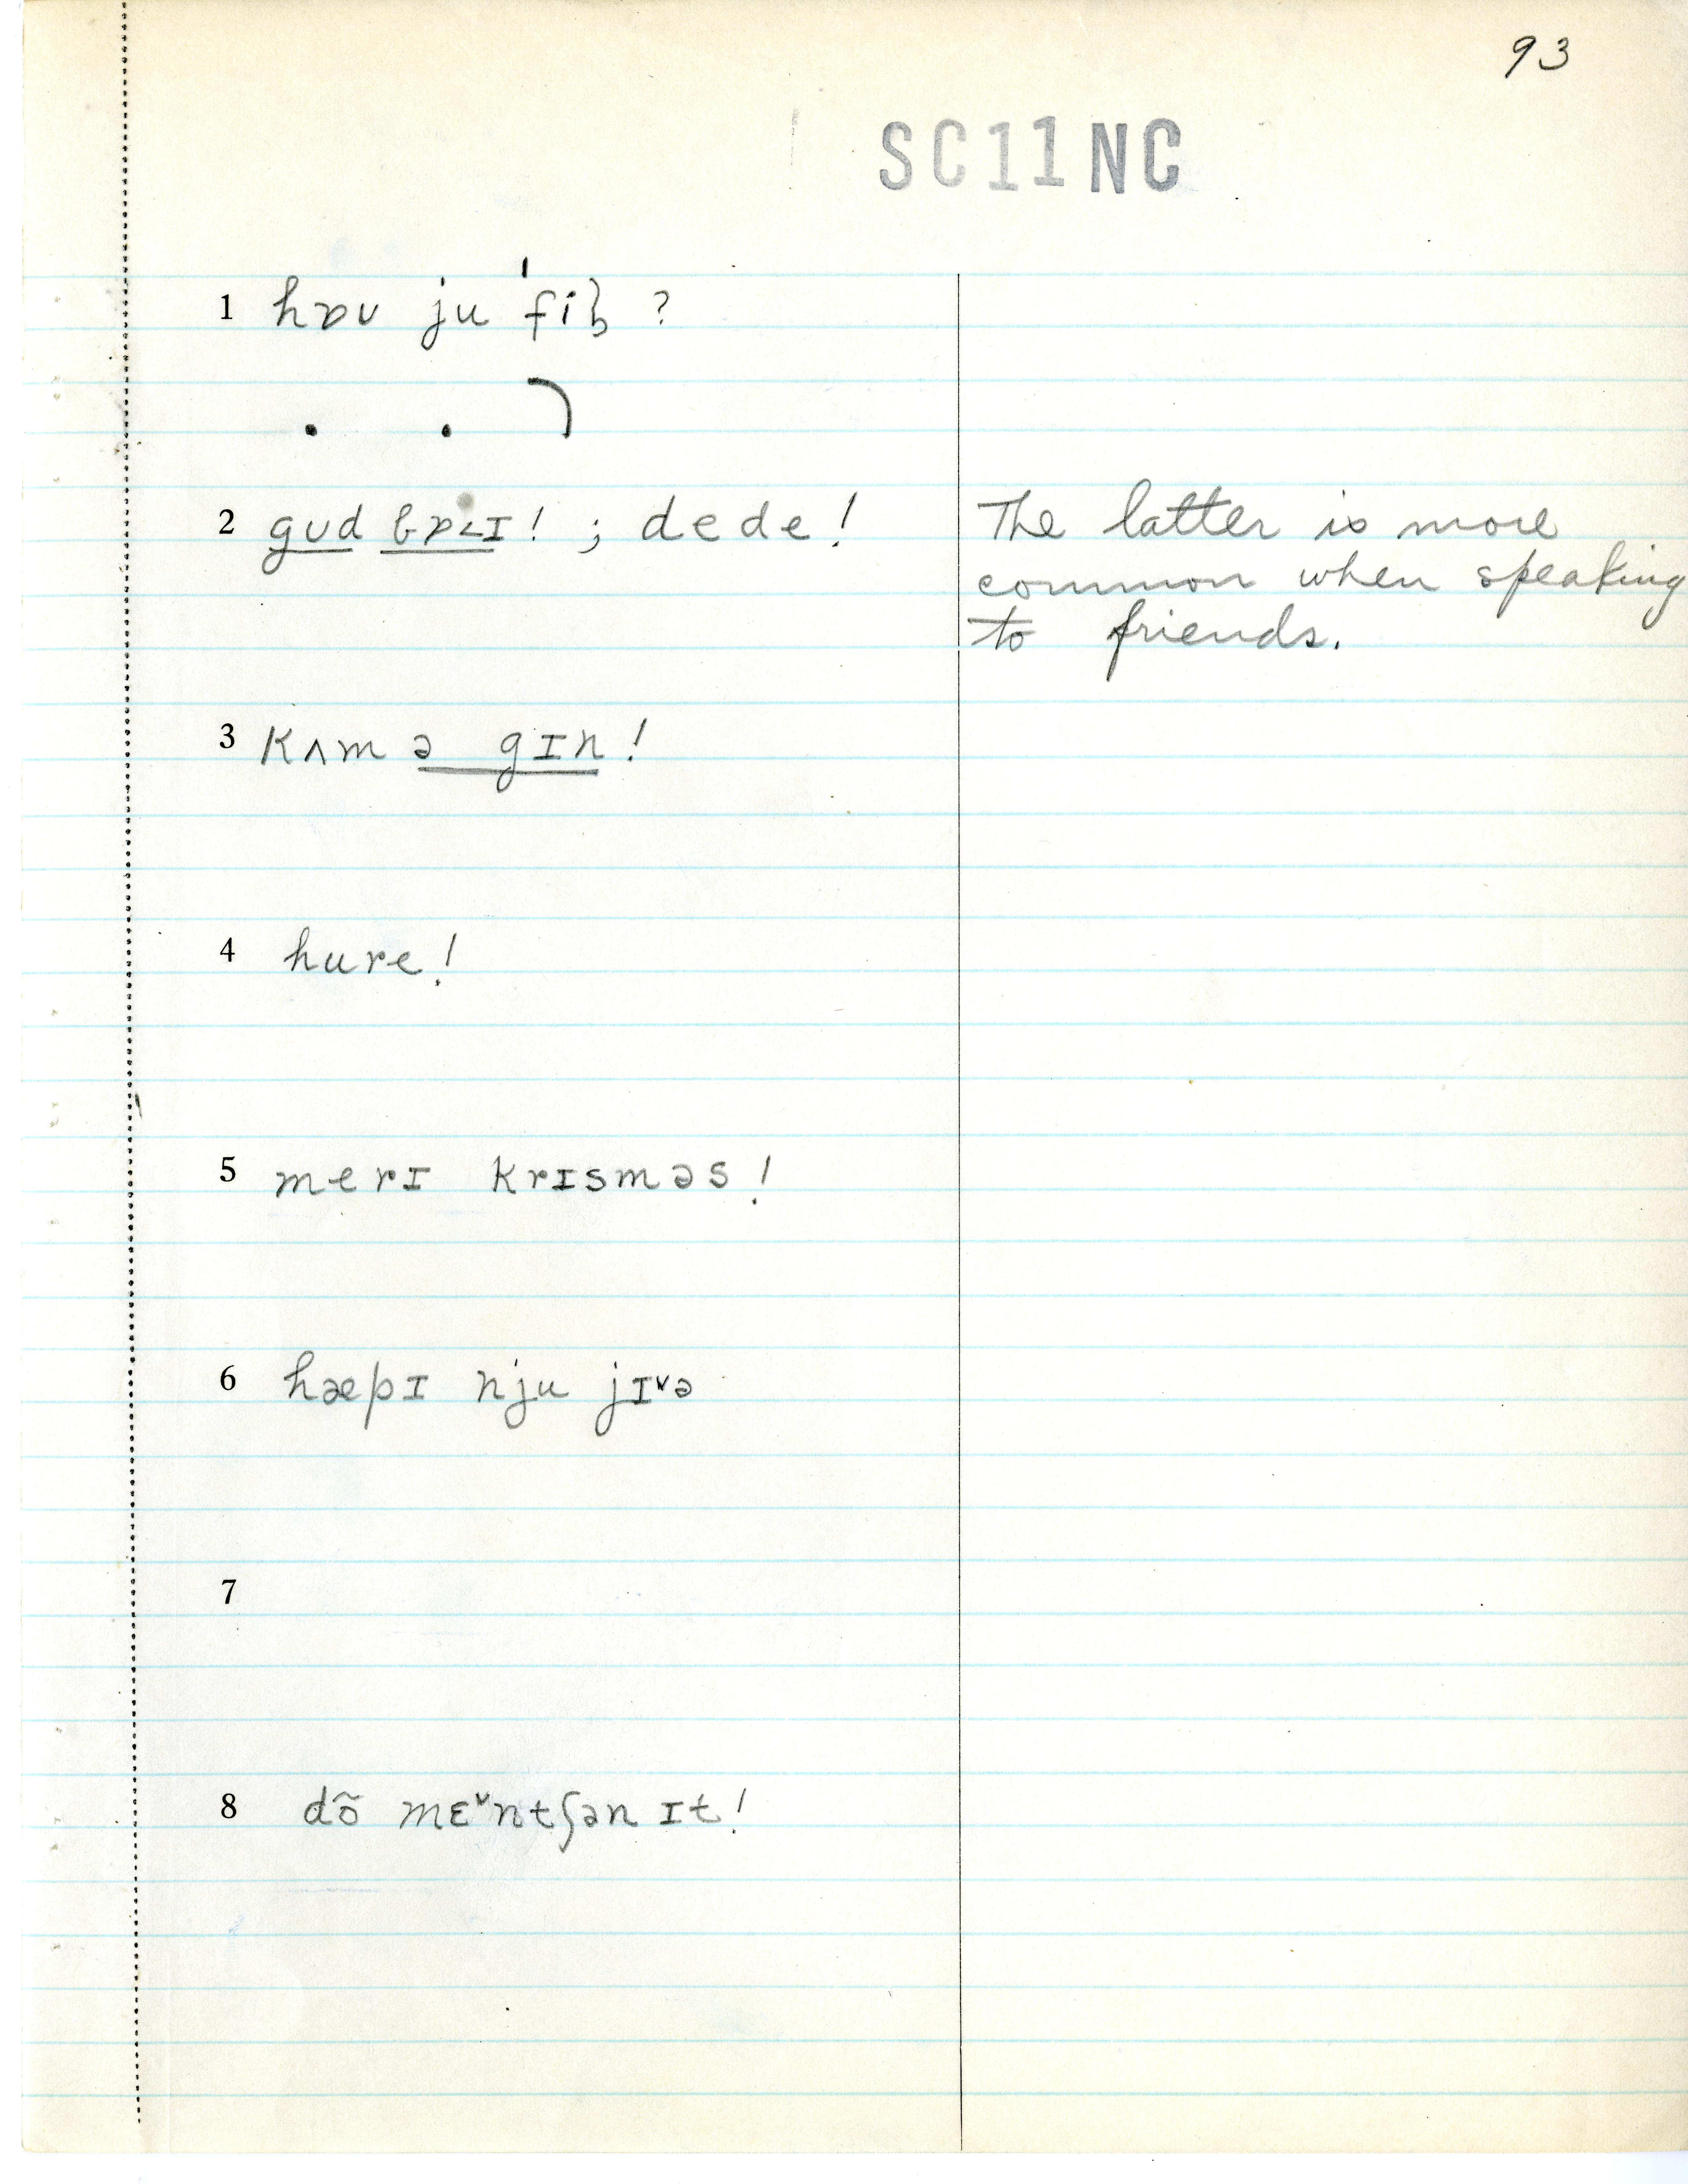 93
SC11NC
1 hɒʊ ju ˈfiɫ ?
2 gʊd bɒ˂ɪ! ; dede! The latter is more
common when speaking
to friends.
3 kʌm ə gɪn!
4 hure!
5 merɪ krɪsməs!
6 hæpɪ nju jɪ˅ə
7
8 dõ mɛ˅ntʃən ɪt!